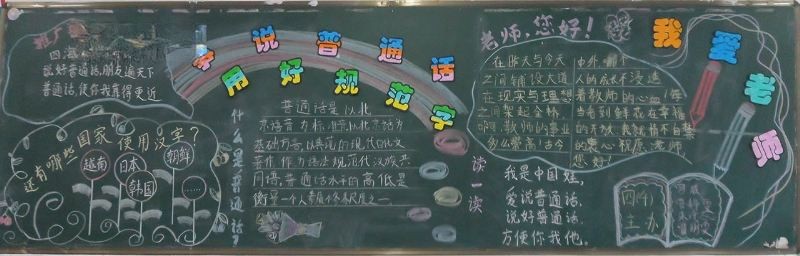 推广
四海
说好普通话,朋友遍天下
普通话,使你我靠得更近
还有哪些国家使用汉字?
越南
日本
朝鲜
韩国
……
学说普通话
用好规范字
什么是普通话?
普通话是以北
京语音为标准音,以北京话为
基础方言,以典范的现代白话文
著作作为语法规范的汉族共
同语,普通话水平的高低是
衡量一个人素质修养尺度之一
读一读
我是中国娃,
爱说普通话,
说好普通话,
方便你我他。
老师,您好!
在昨天与今天
之间铺设大道
在现实与理想
之间架起金桥
啊,教师的事业
多么崇高!古今
中外,哪个
人的成长不浸透
着教师的心血!每
当看到鲜花在幸福
的时候,我就情不自禁
的衷心祝愿:老师
您好!
我爱老师
四(1)
主办